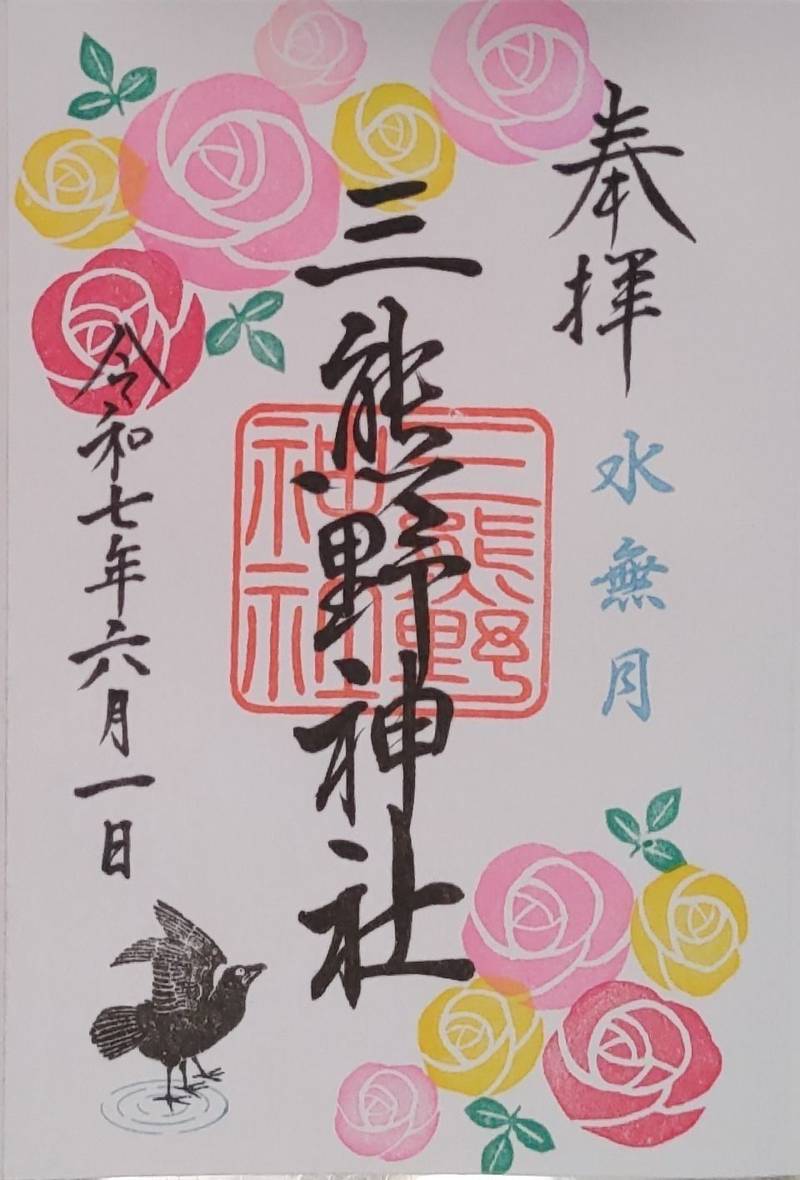 奉拝
水無月
三熊野神社
三熊野
神社
令和七年六月一日